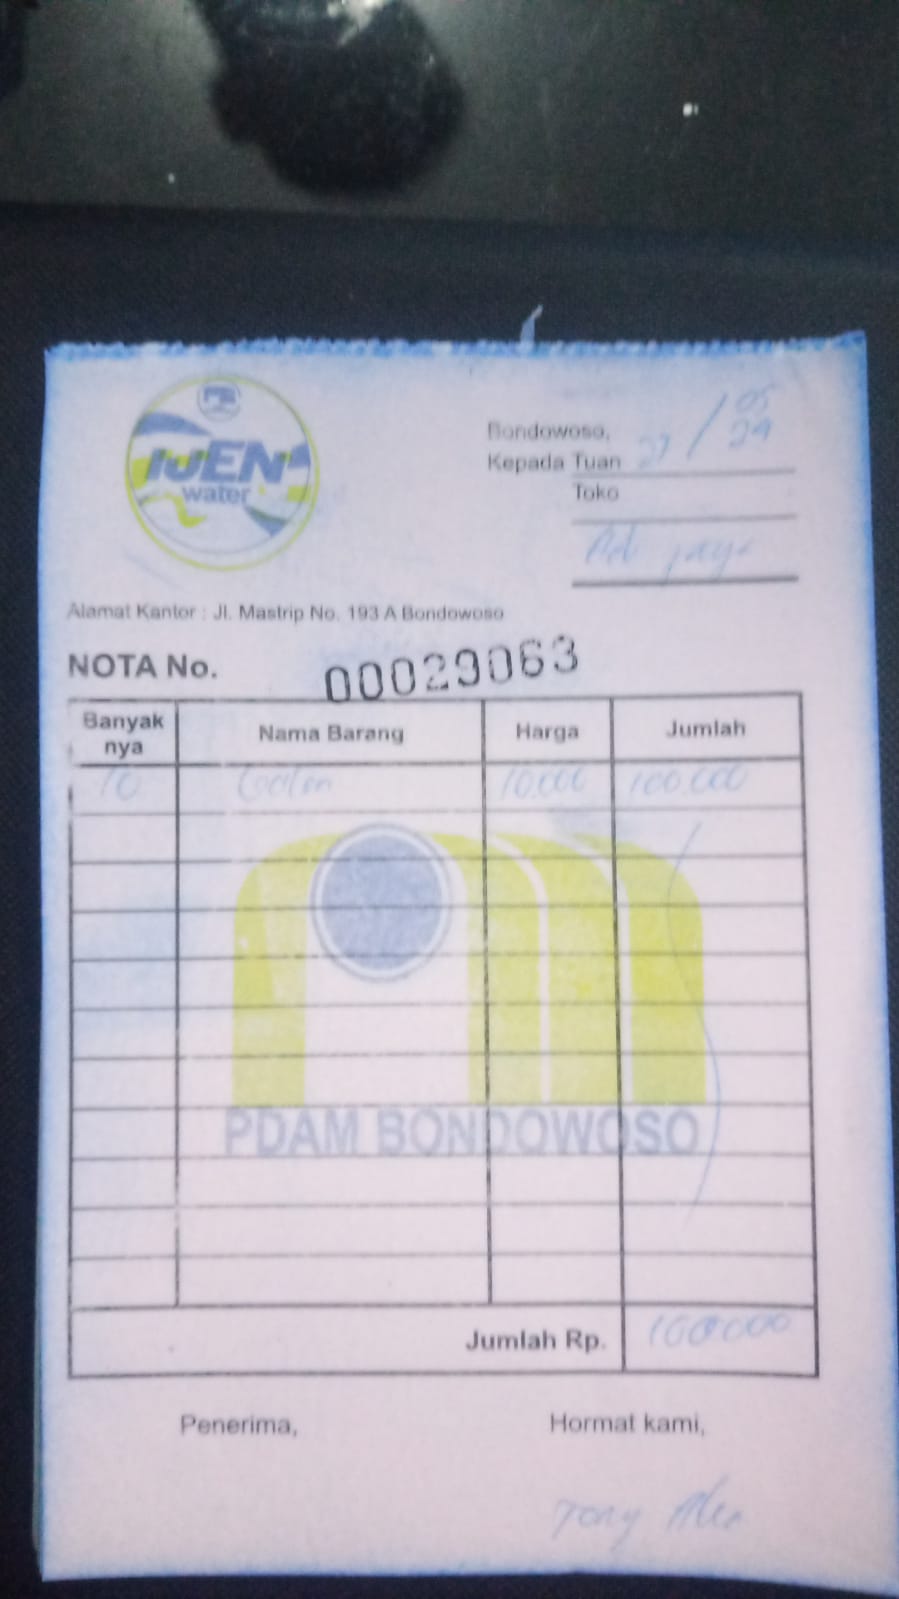 IJEN
water
Bondowoso, 27/05 24
Kepada Tuan
Toko
jaya
Alamat Kantor : Jl. Mastrip No. 193 A Bondowoso
NOTA No. 00029063
Banyak nya Nama Barang Harga Jumlah
10 10.000 100.000
PDAM BONDOWOSO
Jumlah Rp. 100000
Penerima, Hormat kami,
Tony